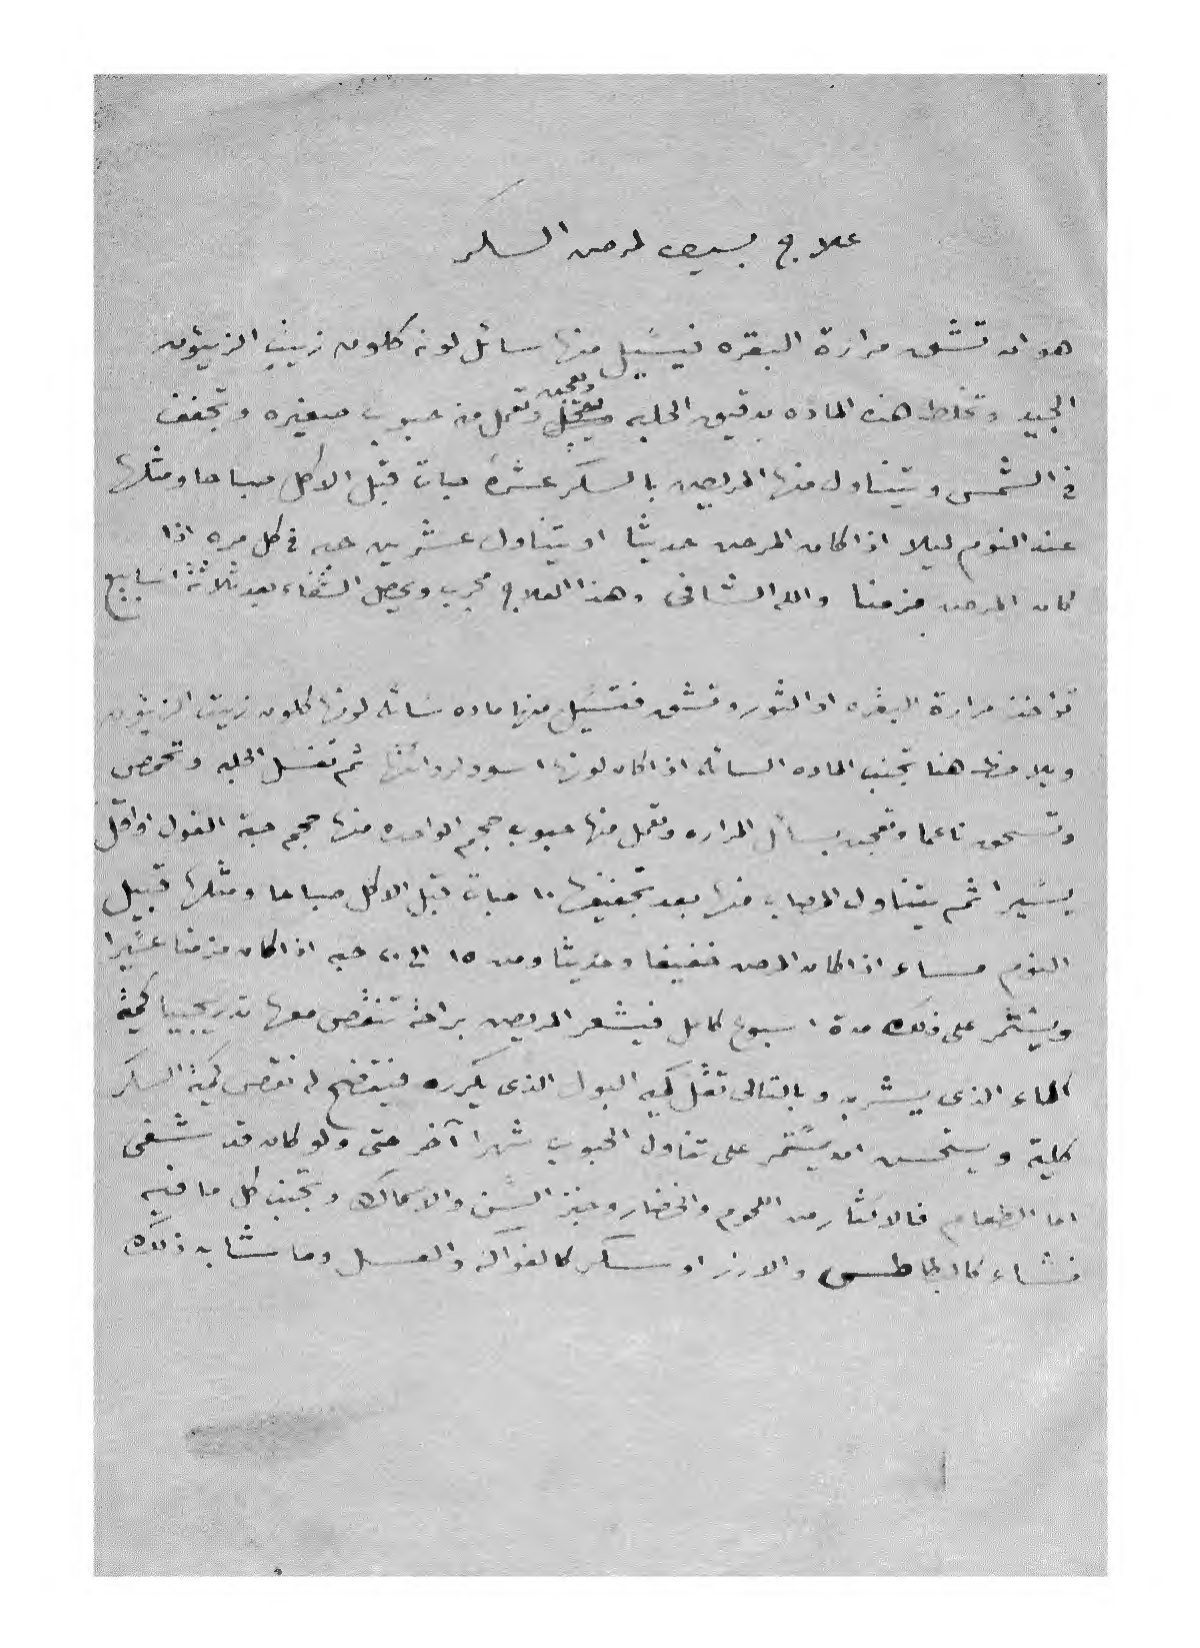 علاج بسيط لمرض السكر
هو ان تشق مرارة البقره فيسيل منها سائل لونه كلون زيت الزيتون
الجيد وتخلط هذه الماده بدقيق الحلبه وتعجن وتعمل منه حبوب صغيره وتجفف
في الشمس ويتناول منها المريض بالسكر عشرة حبات قبل الاكل صباحا ومثلها
عند النوم ليلا اذا كان المرض حديثا او يتناول عشرين حبه في كل مره اذا
كان المرض مزمنا والله الشافى وهذا العلاج مجرب ويحصل الشفاء بعد ثلاثة اسابيع
تؤاخذ مرارة البقره او الثور وتشق فتسيل منها ماده سائله لونها كلون زيت الزيتون
ويلاحظ هنا تجنب الماده السائله اذا كان لونها اسود ثم تغسل الحلبه وتحمص
وتسحق ناعما وتعجن بسائل المراره وتعمل منها حبوب حجم الواحده منها حجم حبة الفول او اقل
يسيرا ثم يتناول المصاب منها بعد تجفيفها ١٠ حبات قبل الاكل صباحا ومثلها قبيل
النوم مساء اذا كان المرض خفيفا وحديثا ومن ١٥ الى ٢٠ حبه اذا كان مزمنا عسيرا
ويستمر على ذلك مدة اسبوع كامل فيشعر المريض براحة تنقص معها تدريجيا كمية
الماء الذى يشربه وبالتالى تقل كميه البول الذى يكرره فيتضح له نقص كمية السكر
كلية ويستحسن ان يستمر على تناول الحبوب شهرا آخر حتى ولو كان قد شفى
اما الطعام فالاكثار من اللحوم والخضار وخبز السن والاسماك وتجنب كل ما فيه
نشاء كالبطاطس والارز او سكر كالفواكه والعسل وما شابه ذلك